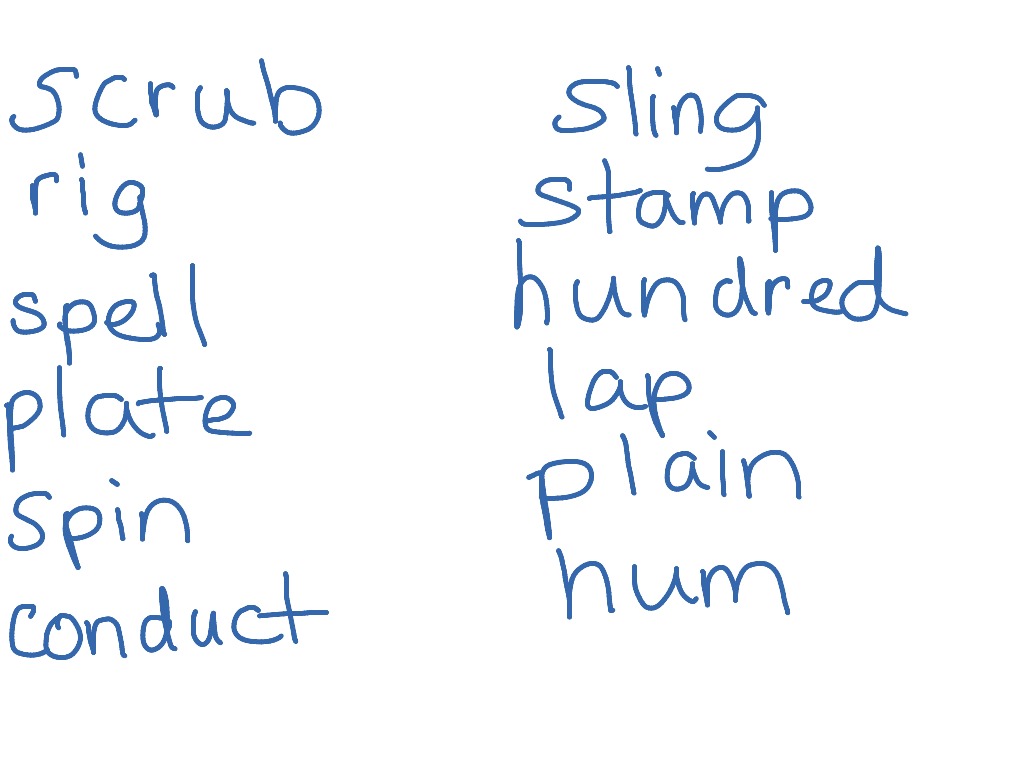 scrub
rig
spell
plate
spin
conduct
sling
stamp
hundred
lap
plain
hum